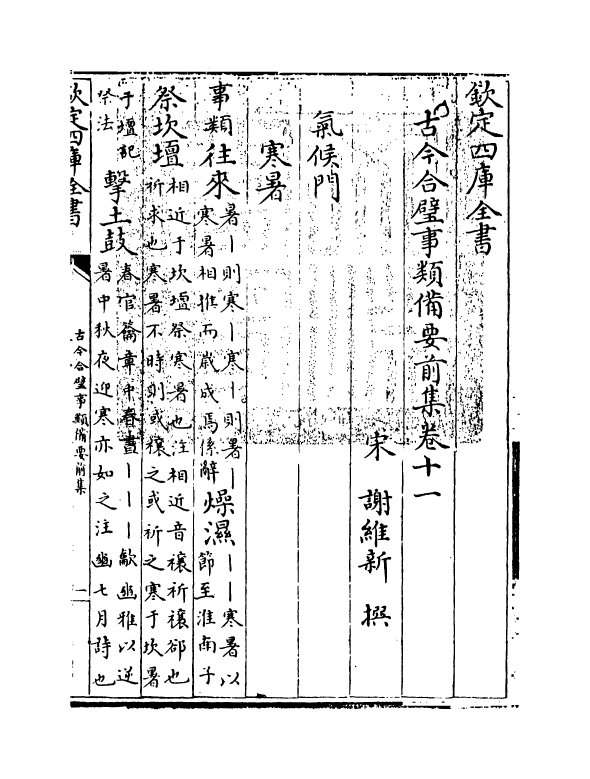 欽定四庫全書
古今合璧事類備要前集卷十一
宋 謝維新 撰
氣候門
寒暑
事類往來
暑丨則寒丨寒丨則暑丨
寒暑相推而歲成焉係辭
燥濕
丨丨寒暑以
節至淮南子
祭坎壇
相近于坎壇祭寒暑也注相近音禳祈禳郤也
祈求也寒暑不時則或禳之或祈之寒于坎暑
于壇記
祭法
擊土鼓
春官籥章中春晝丨丨丨龡豳雅以逆
暑中秋夜迎寒亦如之注豳七月詩也
欽定四庫全書
古今合璧事類備要前集
一